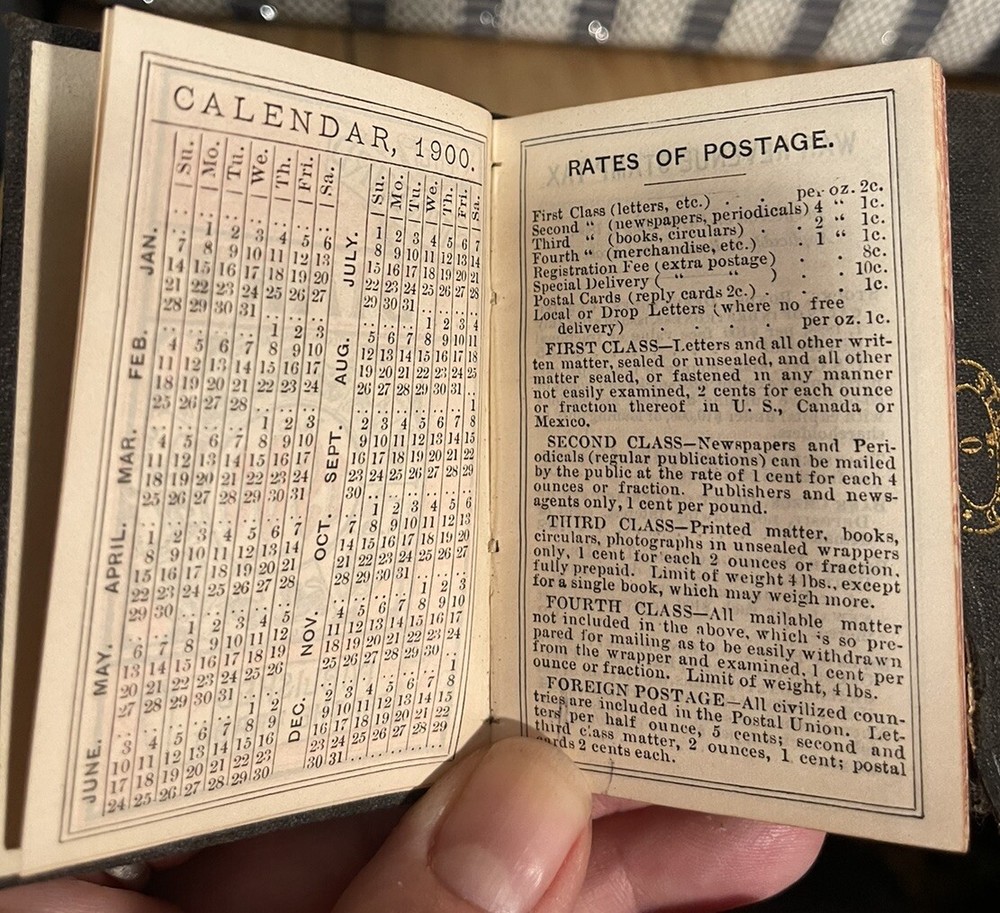 CALENDAR, 1900.
Su. Mo. Tu. We. Th. Fri. Sa.
JAN.
.. 1 2 3 4 5 6
7 8 9 10 11 12 13
14 15 16 17 18 19 20
21 22 23 24 25 26 27
28 29 30 31 .. .. ..
FEB.
.. .. .. .. 1 2 3
4 5 6 7 8 9 10
11 12 13 14 15 16 17
18 19 20 21 22 23 24
25 26 27 28 .. .. ..
MAR.
.. .. .. .. 1 2 3
4 5 6 7 8 9 10
11 12 13 14 15 16 17
18 19 20 21 22 23 24
25 26 27 28 29 30 31
APRIL.
1 2 3 4 5 6 7
8 9 10 11 12 13 14
15 16 17 18 19 20 21
22 23 24 25 26 27 28
29 30 .. .. .. .. ..
MAY.
.. .. 1 2 3 4 5
6 7 8 9 10 11 12
13 14 15 16 17 18 19
20 21 22 23 24 25 26
27 28 29 30 31 .. ..
JUNE.
.. .. .. .. .. 1 2
3 4 5 6 7 8 9
10 11 12 13 14 15 16
17 18 19 20 21 22 23
24 25 26 27 28 29 30
Su. Mo. Tu. We. Th. Fri. Sa.
JULY.
1 2 3 4 5 6 7
8 9 10 11 12 13 14
15 16 17 18 19 20 21
22 23 24 25 26 27 28
29 30 31 .. .. .. ..
AUG.
.. .. .. 1 2 3 4
5 6 7 8 9 10 11
12 13 14 15 16 17 18
19 20 21 22 23 24 25
26 27 28 29 30 31 ..
SEPT.
.. .. .. .. .. .. 1
2 3 4 5 6 7 8
9 10 11 12 13 14 15
16 17 18 19 20 21 22
23 24 25 26 27 28 29
30 .. .. .. .. .. ..
OCT.
.. 1 2 3 4 5 6
7 8 9 10 11 12 13
14 15 16 17 18 19 20
21 22 23 24 25 26 27
28 29 30 31 .. .. ..
NOV.
.. .. .. .. 1 2 3
4 5 6 7 8 9 10
11 12 13 14 15 16 17
18 19 20 21 22 23 24
25 26 27 28 29 30 ..
DEC.
.. .. .. .. .. .. 1
2 3 4 5 6 7 8
9 10 11 12 13 14 15
16 17 18 19 20 21 22
23 24 25 26 27 28 29
30 31 .. .. .. .. ..
RATES OF POSTAGE.
First Class (letters, etc.) . . per oz. 2c.
Second “ (newspapers, periodicals) 4 “ 1c.
Third “ (books, circulars) . . 2 “ 1c.
Fourth “ (merchandise, etc.) . 1 “ 1c.
Registration Fee (extra postage) . . 8c.
Special Delivery ( “ “ ) . . 10c.
Postal Cards (reply cards 2c.) . . . 1c.
Local or Drop Letters (where no free
delivery) . . . . per oz. 1c.
FIRST CLASS—Letters and all other writ-
ten matter, sealed or unsealed, and all other
matter sealed, or fastened in any manner
not easily examined, 2 cents for each ounce
or fraction thereof in U. S., Canada or
Mexico.
SECOND CLASS—Newspapers and Peri-
odicals (regular publications) can be mailed
by the public at the rate of 1 cent for each 4
ounces or fraction. Publishers and news-
agents only, 1 cent per pound.
THIRD CLASS—Printed matter, books,
circulars, photographs in unsealed wrappers
only, 1 cent for each 2 ounces or fraction,
fully prepaid. Limit of weight 4 lbs., except
for a single book, which may weigh more.
FOURTH CLASS—All mailable matter
not included in the above, which is so pre-
pared for mailing as to be easily withdrawn
from the wrapper and examined, 1 cent per
ounce or fraction. Limit of weight, 4 lbs.
FOREIGN POSTAGE—All civilized coun-
tries are included in the Postal Union. Let-
ters per half ounce, 5 cents; second and
third class matter, 2 ounces, 1 cent; postal
cards 2 cents each.